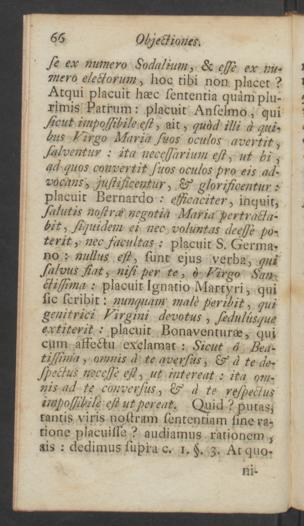 66 Objectiones.
se ex numero Sodalium, & esse ex nu-
mero electorum, hoc tibi non placet?
Atqui placuit hæc sententia quàm plu-
rimis Patrum: placuit Anselmo, qui
sicut impossibile est, ait, quòd illi à qui-
bus Virgo Maria suos oculos avertit,
salventur: ita necessarium est, ut hi,
ad quos convertit suos oculos pro eis ad-
vocans, justificentur, & glorificentur:
placuit Bernardo: efficaciter, inquit,
salutis nostræ negotia Maria pertracta-
bit, siquidem ei nec voluntas deesse po-
terit, nec facultas: placuit S. Germa-
no: nullus est, sunt ejus verba, qui
salvus fiat, nisi per te, ô Virgo San-
ctissima: placuit Ignatio Martyri, qui
sic scribit: nunquam malè peribit, qui
genitrici Virgini devotus, sedulúsque
extiterit: placuit Bonaventuræ, qui
cum affectu exclamat: Sicut ô Bea-
tissima, omnis à te aversus, & à te de-
spectus necesse est, ut intereat: ita om-
nis ad te conversus, & à te respectus
impossibile est ut pereat. Quid? putas,
tantis viris nostram sententiam sine ra-
tione placuisse? audiamus rationem,
ais: dedimus supra c. 1. §. 3. At quo-
ni-